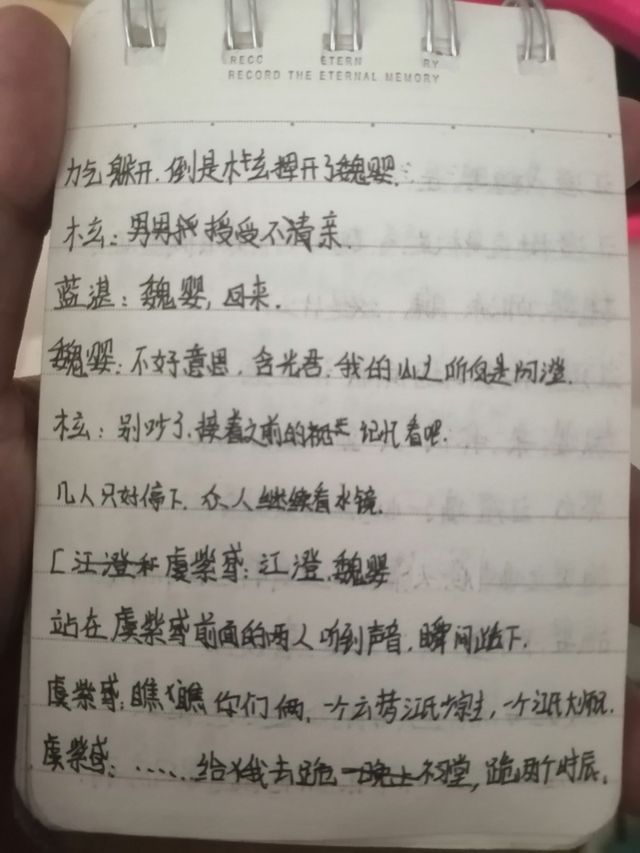 RECO ETERN RY
RECORD THE ETERNAL MEMORY
力气躲开.倒是木玄捏开了魏婴.
木玄:男男授受不清亲.
蓝湛:魏婴,回来.
魏婴:不好意思,含光君.我的心之所向是阿澄.
木玄:别吵了.接着之前的记忆看吧.
几人只好停下.众人继续看水镜.
[江澄和虞紫鸢:江澄.魏婴
站在虞紫鸢前面的两人听到声音.瞬间跪下.
虞紫鸢:瞧瞧你们俩,一个云梦江氏少宗主,一个江氏大师兄.
虞紫鸢:......给我去跪一晚上祠堂,跪两个时辰.